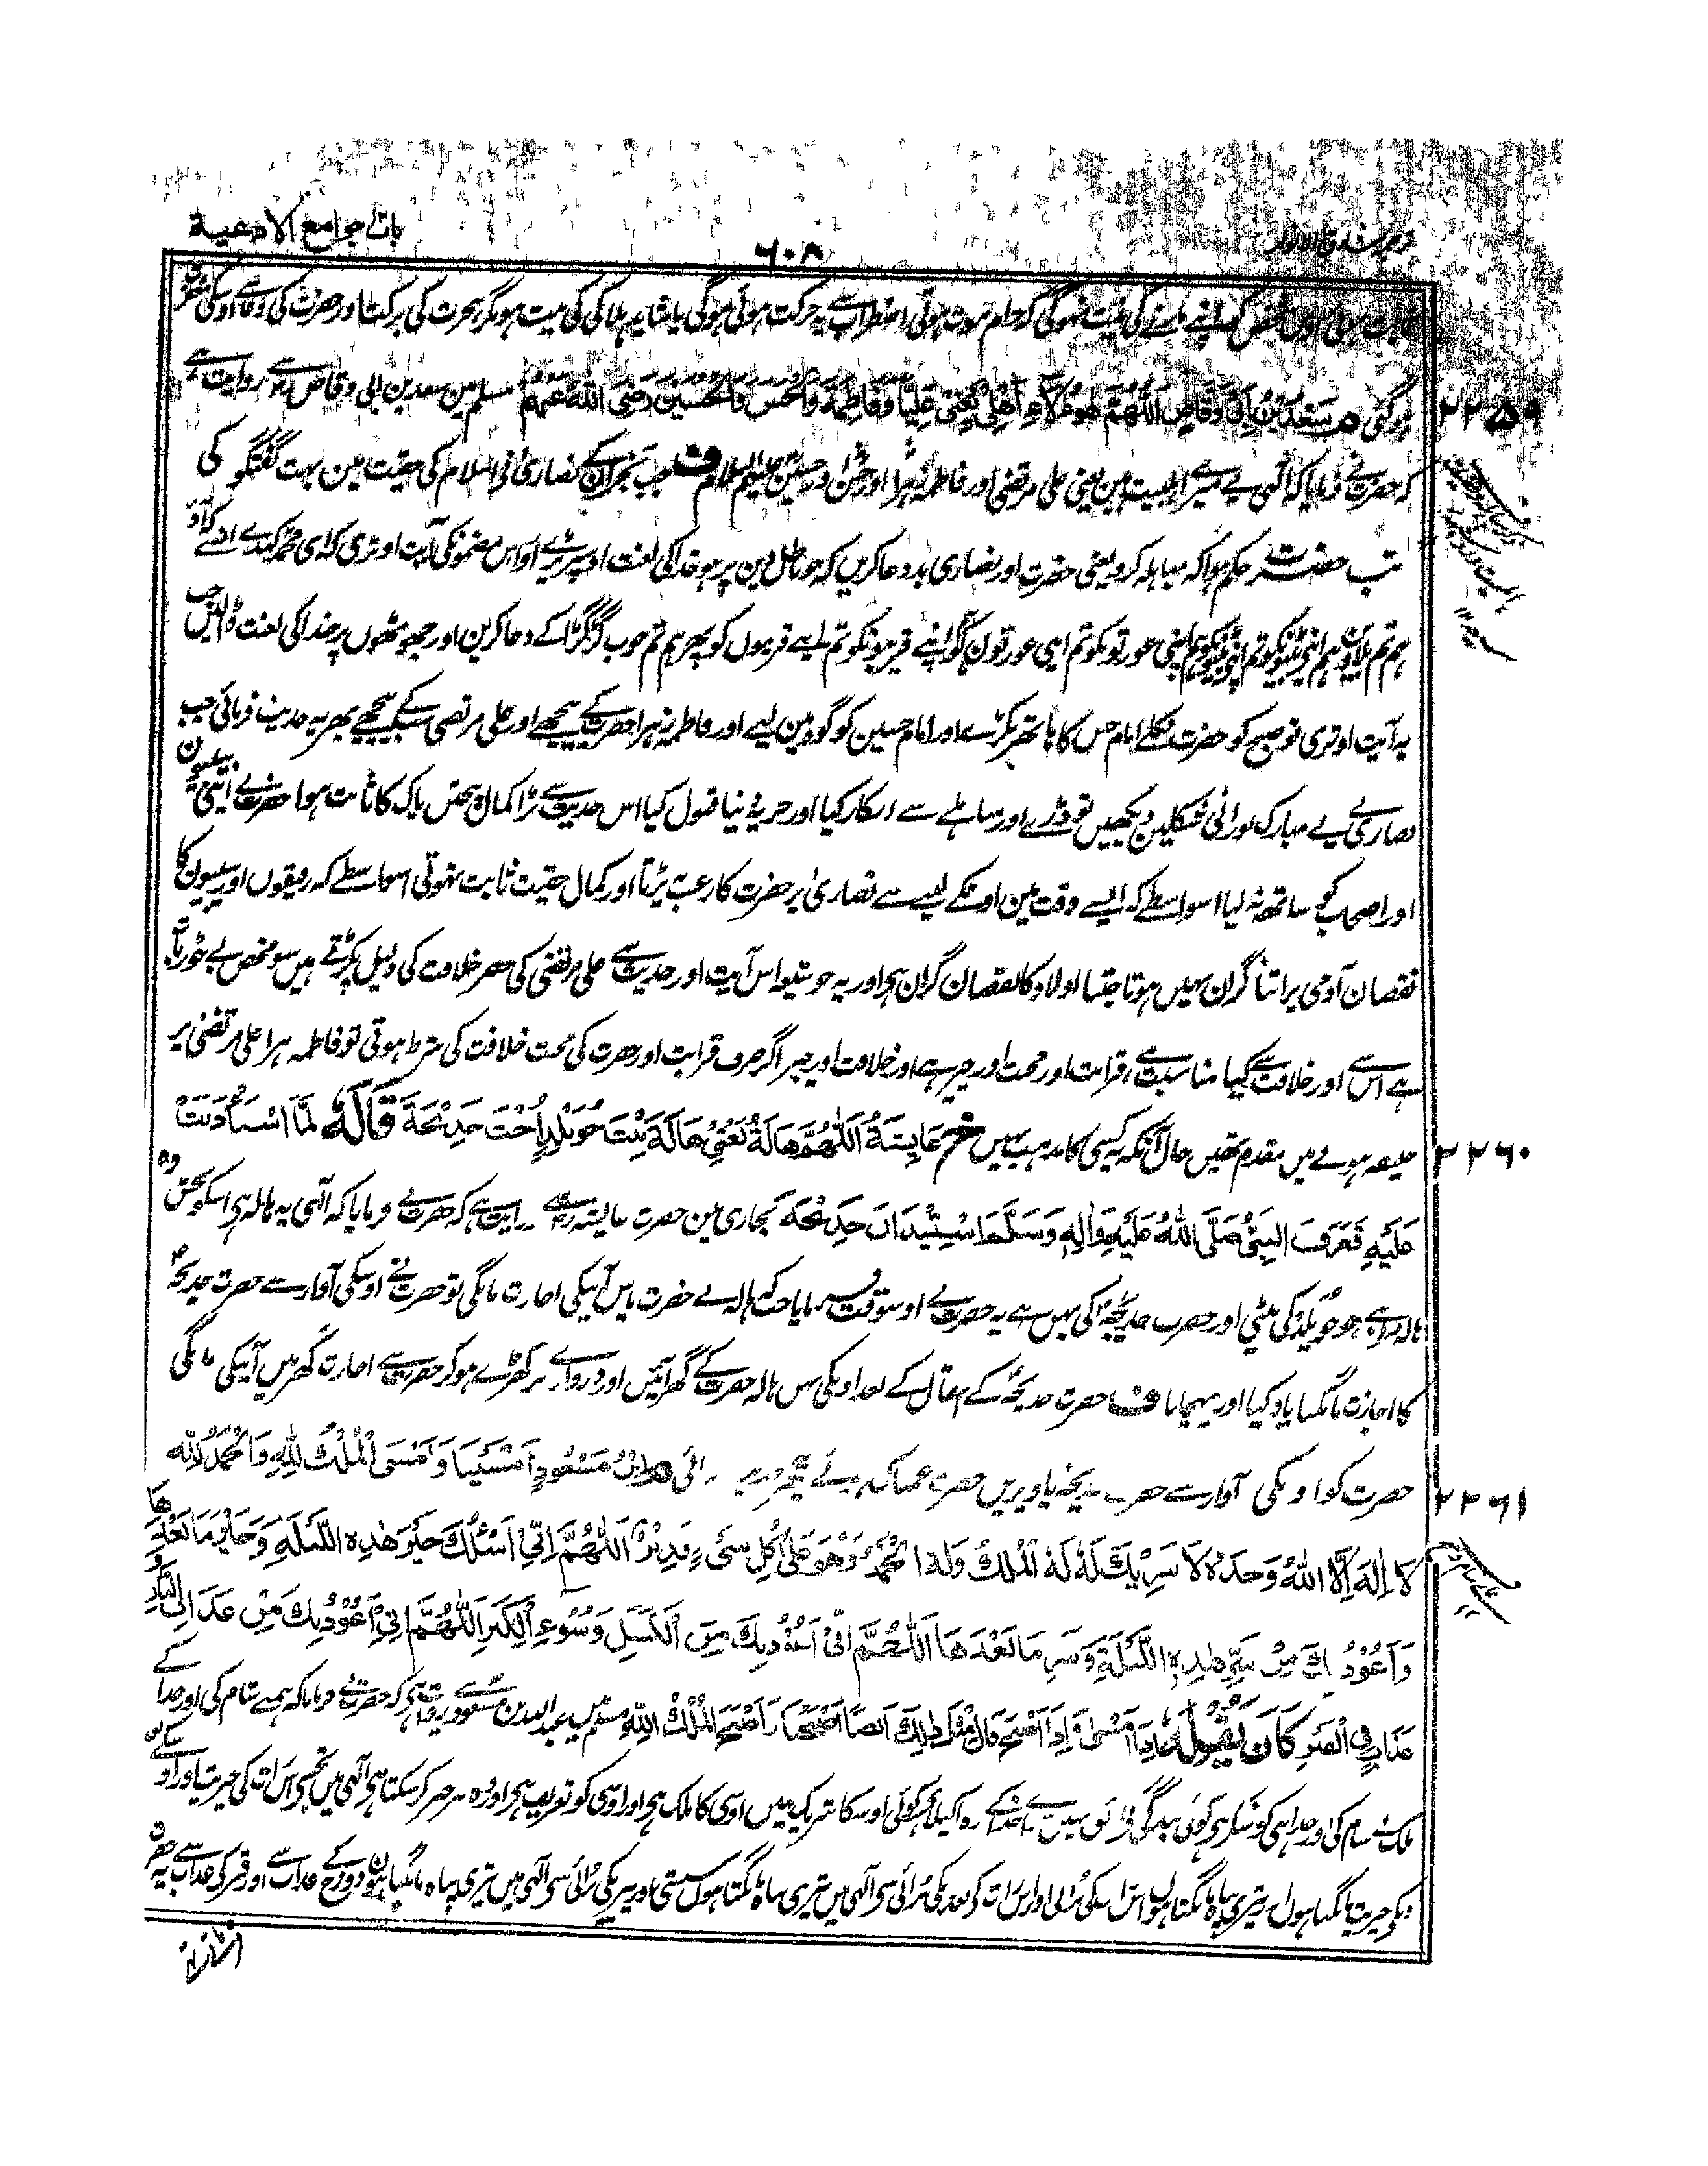 باب جوامع الادعیة
۶۰۸
ثابت ہوئی اور اس شخص کو اپنے مارنے کی نیت نہوگی کہ حرام موت ہوتی اضطراب سے یہ حرکت ہوئی ہوگی یا شاید ہلاکی کی نیت ہو مگر ہجرت کی برکت اور حضرت کی دعا سے اوسکی مغفرت
ہو گئی م سَعْدُ بْنُ اَبِیْ وَقَّاصٍ اَللّٰهُمَّ هٰؤُلَاءِ اَهْلِیْ یَعْنِیْ عَلِیًّا وَفَاطِمَةَ وَالْحَسَنَ وَالْحُسَیْنَ رَضِیَ اللّٰهُ عَنْهُمْ مسلم مین سعد بن ابی وقاص رض سے روایت ہے
۲۲۵۹
کہ حضرت نے فرمایا کہ الٰہی یے میرے اہلبیت ہین یعنی علی مرتضی اور فاطمہ زہرا اور حسن اور حسین علیہم السلام ف جب نجران کے نصاریٰ نے اسلام کی حقیت مین بہت گفتگو کی
تب حضرت کو حکم ہوا کہ مباہلہ کرو یعنی حضرت اور نصاری بددعا کریں کہ جو باطل دین پر ہو خدا کی لعنت اوسپر پڑے اور اس مضمون کی آیت اوتری کہ ای محمد کہدے اونسے کہ آؤ
ہم تم بلاویں ہم اپنے بیٹونکو تم اپنے بیٹونکو ہم اپنی عورتونکو تم اپنی عورتون کو اپنے قریبونکو تم اپنے قریبوں کو پھر ہم تم خوب گڑگڑا کے دعا کرین اور جھوٹھوں پر خدا کی لعنت ڈالیں جب
یہ آیت اوتری تو صبح کو حضرت نکلے امام حسن کا ہاتھ پکڑے اور امام حسین کو گود مین لیے اور فاطمہ زہرا حضرت کے پیچھے اور علی مرتضی سبکے پیچھے پھر یہ حدیث فرمائی جب
نصاری نے یے مبارک نورانی شکلین دیکھیں تو ڈرے اور مباہلے سے انکار کیا اور جزیہ دینا قبول کیا اس حدیث سے بڑا کمال پنجتن پاک کا ثابت ہوا حضرت نے اپنی بیبیون
اور اصحاب کو ساتھ نہ لیا اسواسطے کہ ایسے وقت مین اونکے لینے سے نصاریٰ پر حضرت کا رعب نہ پڑتا اور کمال حقیت ثابت نہوتی اسواسطے کہ رفیقوں اور بیبیون کا
نقصان آدمی پر اتنا گران نہیں ہوتا جتنا اولاد کا نقصان گران ہی اور یہ جو شیعہ اس آیت اور حدیث سے علی مرتضی کی حصر خلافت کی دلیل پکڑتے ہیں سو محض بے ٹھور بات
ہے اس سے اور خلافت سے کیا مناسبت ہے قرابت اور محبت اور چیز ہے اور خلافت اور چیز اگر صرف قرابت اور حضرت کی محبت خلافت کی شرط ہوتی تو فاطمہ زہرا علی مرتضی پر
خلیفہ ہونے میں مقدم تھیں حال آنکہ یہ کسی کا مذہب نہیں خ عَایِشَةُ اَللّٰهُمَّ هَالَةُ یَعْنِیْ هَالَةَ بِنْتَ خُوَیْلِدٍ اُخْتَ خَدِیْجَةَ قَالَهٗ لَمَّا اسْتَأْذَنَتْ
۲۲۶۰
عَلَیْهِ فَعَرَفَ النَّبِیُّ صَلَّی اللّٰهُ عَلَیْهِ وَاٰلِهٖ وَسَلَّمَ اسْتِیْذَانَ خَدِیْجَةَ بخاری مین حضرت عایشہ رض سے روایت ہے کہ حضرت نے فرمایا کہ الٰہی یہ ہالہ ہی اسکو بخش وہ
ہالہ مراد ہے جو خویلد کی بیٹی اور حضرت خدیجہ کی بہن ہے یہ حضرت نے اوسوقت فرمایا جب کہ ہالہ نے حضرت پاس آنیکی اجازت مانگی تو حضرت نے اوسکی آواز سے حضرت خدیجہ
کا اجازت مانگنا یاد کیا اور پہچانا ف حضرت خدیجہ کے انتقال کے بعد اونکی بہن ہالہ حضرت کے گھر آئیں اور دروازے پر کھڑے ہو کر حضرت سے اجازت گھر میں آنیکی مانگی
حضرت کو اونکی آواز سے حضرت خدیجہ یاد پڑیں حضرت غمناک ہوئے م اِبْنُ مَسْعُوْدٍ اَمْسَیْنَا وَاَمْسَی الْمُلْكُ لِلّٰهِ وَالْحَمْدُ لِلّٰهِ
۲۲۶۱
لَا اِلٰهَ اِلَّا اللّٰهُ وَحْدَهٗ لَا شَرِیْكَ لَهٗ لَهُ الْمُلْكُ وَلَهُ الْحَمْدُ وَهُوَ عَلٰی کُلِّ شَیْءٍ قَدِیْرٌ اَللّٰهُمَّ اِنِّیْ اَسْئَلُكَ خَیْرَ هٰذِهِ اللَّیْلَةِ وَخَیْرَ مَا بَعْدَهَا
وَاَعُوْذُ بِكَ مِنْ شَرِّ هٰذِهِ اللَّیْلَةِ وَشَرِّ مَا بَعْدَهَا اَللّٰهُمَّ اِنِّیْ اَعُوْذُ بِكَ مِنَ الْکَسَلِ وَسُوْءِ الْکِبَرِ اَللّٰهُمَّ اِنِّیْ اَعُوْذُ بِكَ مِنْ عَذَابٍ فِی النَّارِ وَ
عَذَابٍ فِی الْقَبْرِ کَانَ یَقُوْلُهٗ اِذَا اَمْسٰی وَاِذَا اَصْبَحَ قَالَ مِثْلَ ذٰلِكَ اَیْضًا اَصْبَحْنَا وَاَصْبَحَ الْمُلْكُ لِلّٰهِ مسلم میں عبد اللہ بن مسعود رض سے روایت ہی کہ حضرت نے فرمایا کہ ہمنے شام کی اور خدا کے
ملک نے شام کی اور خدا ہی کو شکر ہی کوئی بندگی لائق نہیں سوائے خدا کے وہ اکیلا ہی کوئی اوسکا شریک نہیں اوسی کا ملک ہی اور اوسی کو تعریف ہی اور وہ ہر چیز کر سکتا ہی الٰہی میں تجھسے اس رات کی خیریت اور اوسکے بعد
کی خیریت مانگتا ہوں اور تیری پناہ مانگتا ہوں اس رات کی بُرائی اور اس رات کے بعد کی بُرائی سی الٰہی میں تیری پناہ مانگتا ہوں سستی اور پیری کی بُرائی سی الٰہی میں تیری پناہ مانگتا ہوں دوزخ کے عذاب سے اور قبر کی عذاب سے یہ حضرت